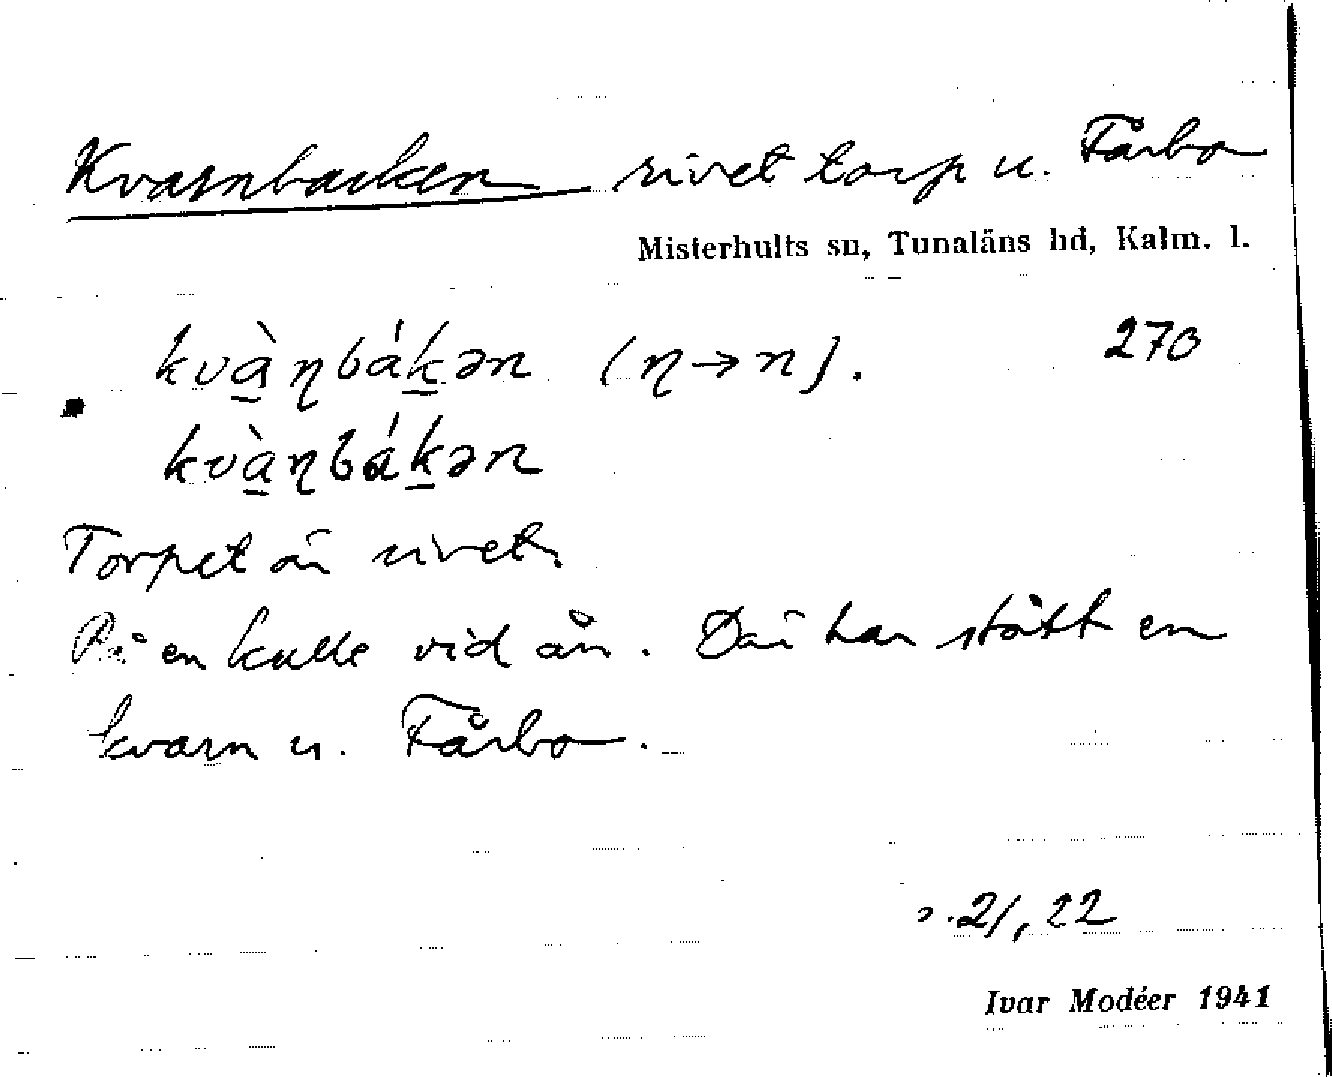 Kvarnbacken rivet torp u. Fårbo
Misterhults sn, Tunaläns hd, Kalm. l.
kvàꞃbákən (ꞃ→n). 270
kvàꞃbákən
Torpet är rivet.
På en kulle vid ån. Där har stått en
kvarn u. Fårbo.
s. 21, 22
Ivar Modéer 1941